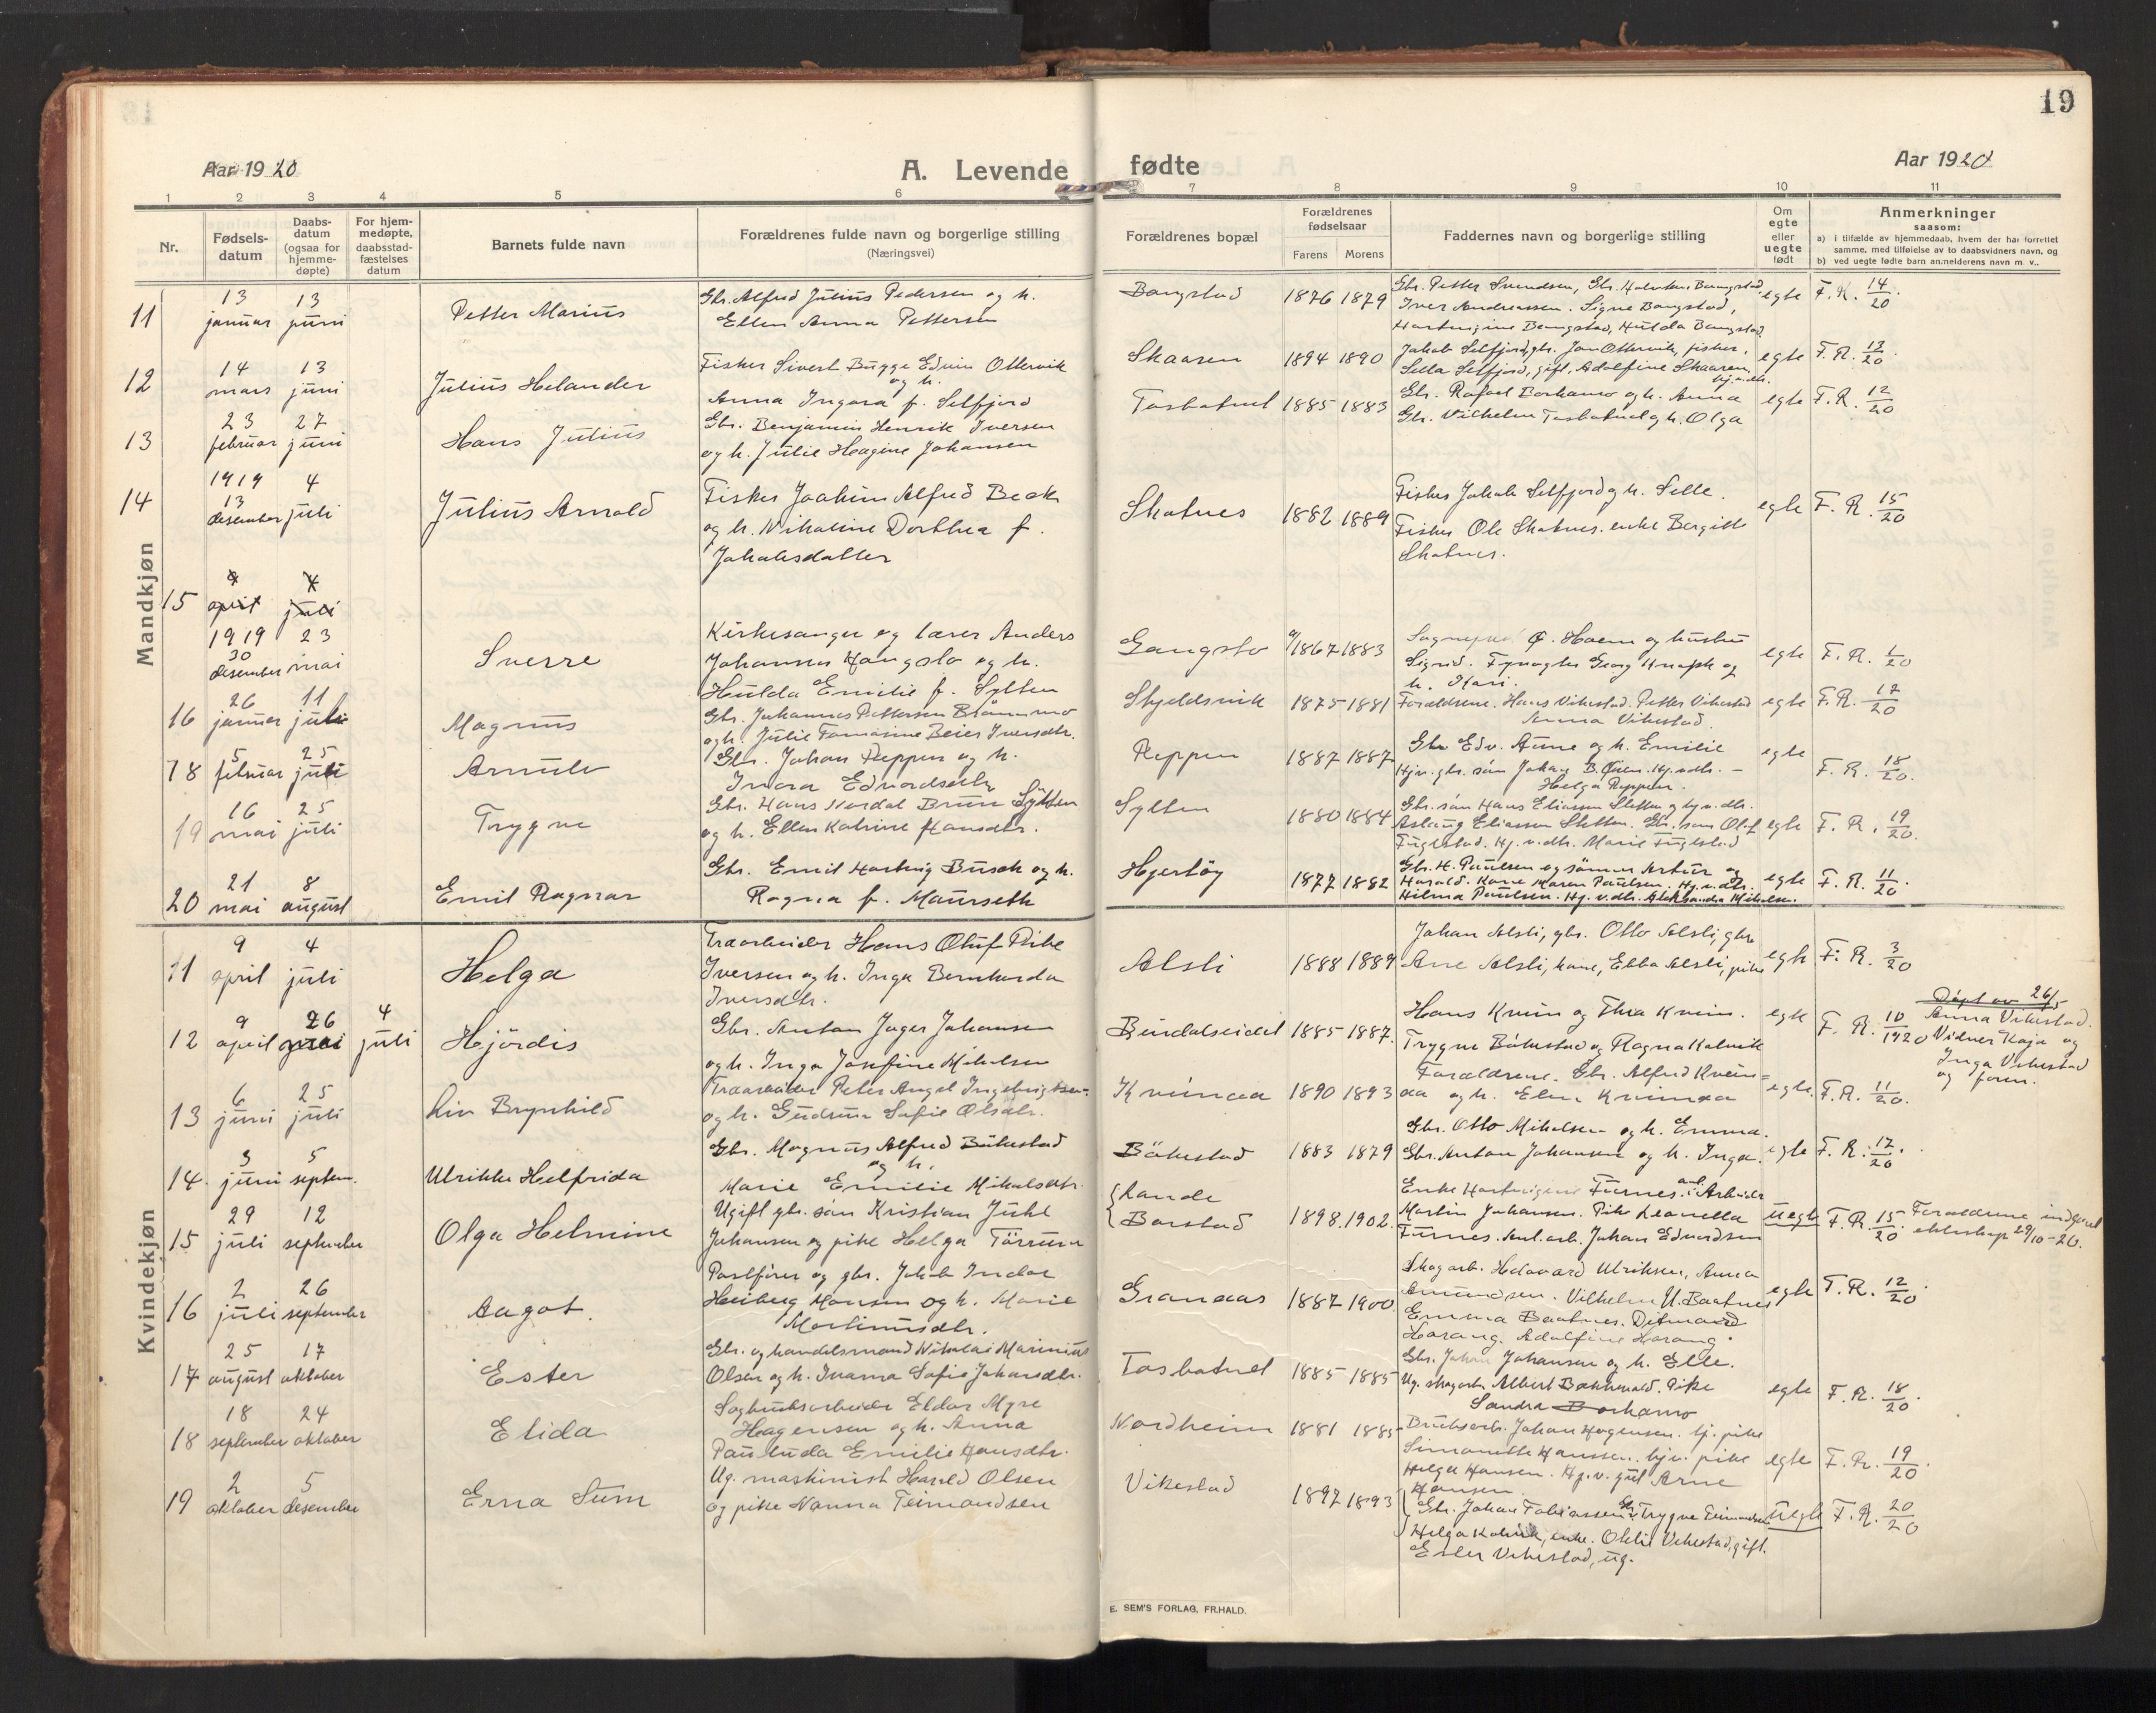 19
Aar 1920
A. Levende
fødte
Aar 1920
1 2 3 4 5 6 7 8 9 10 11
Nr.
Fødsels-
datum
Daabs-
datum
(ogsaa for
hjemme-
døpte)
For hjem-
medøpte,
daabsstad-
fæstelses
datum
Barnets fulde navn
Forældrenes fulde navn og borgerlige stilling
(Næringsvei)
Forældrenes bopæl
Forældrenes
fødselsaar
Farens Morens
Faddernes navn og borgerlige stilling
Om
egte
eller
uegte
født
Anmerkninger
saasom:
a) i tilfælde av hjemmedaab, hvem der har forrettet
samme, med tilføielse av to daabsvidners navn, og
b) ved uegte fødte barn anmelderens navn m. v..
Mandkjøn
11
13 januar
13 juni
Petter Marius
Gbr. Alfred Julius Pedersen og h.
Ellen Anna Pettersen
Bangstad
1876 1879
Gbr. Petter Svendsen, Gbr.
Iver Andreassen. Signe Bangstad,
Hulda Bangstad
egte
F. R. 14/20.
12
14 mars
13 juni
Julius Helander
Fisker Sivert Bugge Edvin Ottervik
og h.
Anna Ingara f. Selfjord
Skaaren
1894 1890
Jakob Selfjord, gbr. Jon Ottervik, fisker.
Sella Selfjord, gift. Adolfine Skaaren,
hj.v.dtr.
egte
F. R. 13/20.
13
23 februar
27 juni
Hans Julius
Gbr. Benjamin Henrik Iversen
og h. Julie Hagine Johansen
Tosbotnet
1885 1883
Gbr. Rafael Borkamo og h. Anna
Gbr. Vilhelm Tosbotnet og h. Olga
egte
F. R. 12/20
14
1919
13 desember
4 juli
Julius Arnold
Fisker Joakim Alfred Beck
og h. Nikoline Dorthea f.
Jakobsdatter
Skotnes
1882 1889
Fisker Jakob Selfjord og h. Selle.
Fisker Ole Skotnes. enke Bergitte
Skotnes.
egte
F. R. 15/20
15
april
juli
1919
30 desember
23 mai
Sverre
Kirkesanger og lærer Anders
Johansen Hangslo og h.
Hulda Emilie f. Sylten
1867 1883
Ø. Hoem og hustru
Sigrid. Georg Knaph og
h. Kari.
egte
F. R. 1/20
16
26 januar
11 juli
Magnus
Gbr. Johannes Pettersen
og h. Julie Tomasine Beier Iversdtr.
Skjeldsvik
1875 1881
Foreldrene. Hans Vikestad. Petter Vikestad
Anna Vikestad.
egte
F. R. 17/20
18
5 februar
25 juli
Arnulv
Gbr. Johan Reppen og h.
Reppen
1887 1887
Gbr Edv. Aune og h. Emilie
Hjv. gbr. søn Johan B. Øien. Hj.v.dtr. -
Helga Reppen.
egte
F. R. 18/20.
19
16 mai
25 juli
Trygve
Gbr. Hans Nordal Brun Sylten
og h. Ellen Katrine Hansdtr.
Sylten
1880 1884
Gbr. søn Hans Eliassen Sletten og hj.v.dtr.
Aslaug Eliassen Sletten. Gbr. søn Olaf
Fuglstad. Hj.v.dtr. Marie Fuglstad
egte
F. R. 19/20.
20
21 mai
8 august
Emil Ragnar
Gbr. Emil Hartvig Busch og h.
Ragna f. Maurseth
Hjertøy
1877 1882
Gbr. H. Paulsen og sønner Artur og
Harald. Kone Maren Paulsen. Hj.v.dtr.
Hilma Paulsen. Hj.v.dtr. Aleksandra Mikalsen.
egte
F. R. 11/20.
Kvindekjøn
11
9 april
4 juli
Helga
Træarbeider Hans Oluf Pike
Iversen og h. Inga Bernharda
Iversdtr.
Alsli
1888 1889
Johan Alsli, gbr. Otto Alsli, gbr.
Ane Alsli, kone, Ebba Alsli, pike
egte
F. R. 3/20
12
9 april
26 mai
4 juli
Hjørdis
Gbr. Anton Jager Johansen
og h. Inga Josefine Mikalsen
Bindalseidet
1885 1887.
Hans Kveim og Thea Kveim.
Trygve Bøkestad og Ragna Kalvik
egte
F. R. 10/1920
Døpt av 26/5
Anna Vikestad.
Vidner Kaja og
Inga Vikestad
og foren.
13
6 juni
25 juli
Liv Brynhild
Træarbeider Peter Angel Ingebrigtsen
og h. Gudrun Sofie Olsdtr.
Kveinaa
1890 1893
Foreldrene. Gbr. Alfred Kvein=
aa og h. Elen Kveinaa
egte.
F. R. 11/20.
14.
3 juni
5 septem.
Ulrikke Helfrida
Gbr. Magnus Alfred Bøkestad
og h.
Marie Emilie Mikalsdtr.
Bøkestad
1883 1879
Gbr. Otto Mikalsen og h. Emma.
Gbr. Anton Johansen og h. Inga.
egte
F. R. 17/20.
15
29 juli
12 september
Olga Helmine
Ugift gbr. søn Kristian Juhl
Johansen og pike Helga Tørrum
Lande
Barstad
1898. 1902.
Enke Hartvigine Furnes. Arbeider
Martin Johansen. Pike Leonella
Furnes. Johan Edvardsen
uegte
F. R. 15/20
Foreldrene indgaaet
ekteskap 29/10-20.
16
2 juli
26 september
Aagot.
Postfører og gbr. Jakob Indar
Heiberg Hansen og h. Marie
Martinusdtr.
Granaas
1887 1900
Skogarb. Hdavard Ulriksen, Anna
Amundsen. Vilhelm U. Baatnes
Emma Baatnes. Ditmar
Horang. Adolfine Horang.
egte
F. R. 12/20.
17
25 august
17 oktober
Ester
Gbr. og handelsmand Nikolai Marinius
Olsen og h. Ivarna Sofie Johansdtr.
Tosbotnet
1885 1885
Gbr. Johan Johansen og h. Elle.
Ug. skogarb. Albert Bakkevold. Pike
Sandra Borkamo
egte
F. R. 18/20.
18
18 september
24 oktober
Elida
Sagbruksarbeider Eldar Myre
Hagensen og h. Anna
Pauluda Emilie Hansdtr.
Nordheim
1881 1885
Bruksarb. Johan Hagensen. hj. pike
Simonette Hanssen. hjv. pike
Helga Hansen. Hj.v. gut Arne
Hansen.
egte
F. R. 19/20.
19
2 oktober
5 desember
Erna Sum
Ug. maskinist Harald Olsen
og pike Nanna Teimandsen
Vikestad
1897 1893
Gbr. Johan Tobiassen, Gbr. Trygve Teimandsen
Helga Kalvik, enke. Oklie Vikestad, gift.
Ester Vikestad, ug.
uegte
F. R. 20/20
E. SEM'S FORLAG, FR.HALD.